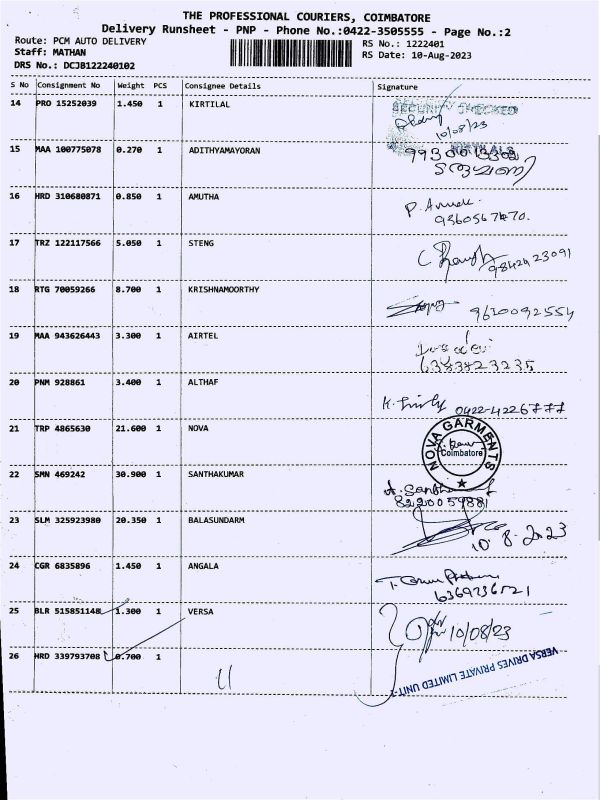 THE PROFESSIONAL COURIERS, COIMBATORE
Delivery Runsheet - PNP - Phone No.:0422-3505555 - Page No.:2
Route: PCM AUTO DELIVERY RS No.: 1222401
Staff: MATHAN RS Date: 10-Aug-2023
DRS No.: DCJB122240102
S No Consignment No Weight PCS Consignee Details Signature
14 PRO 15252039 1.450 1 KIRTILAL SECURITY CHECKED
10/08/23
15 MAA 100775078 0.270 1 ADITHYAMAYORAN
16 HRD 310680871 0.850 1 AMUTHA
9360567470.
17 TRZ 122117566 5.050 1 STENG 9842923091
18 RTG 70059266 8.700 1 KRISHNAMOORTHY 9620092554
19 MAA 943626443 3.300 1 AIRTEL
6383823235
20 PNM 928861 3.400 1 ALTHAF
0422-4226777
21 TRP 4865630 21.600 1 NOVA NOVA GARMENTS
Coimbatore
22 SMN 469242 30.900 1 SANTHAKUMAR
8220059881
23 SLM 325923980 20.350 1 BALASUNDARM
10.8.2023
24 CGR 6835896 1.450 1 ANGALA
6369236521
25 BLR 515851148 1.300 1 VERSA 10/08/23
26 HRD 339793708 0.700 1 VERSA DRIVES PRIVATE LIMITED UNIT-